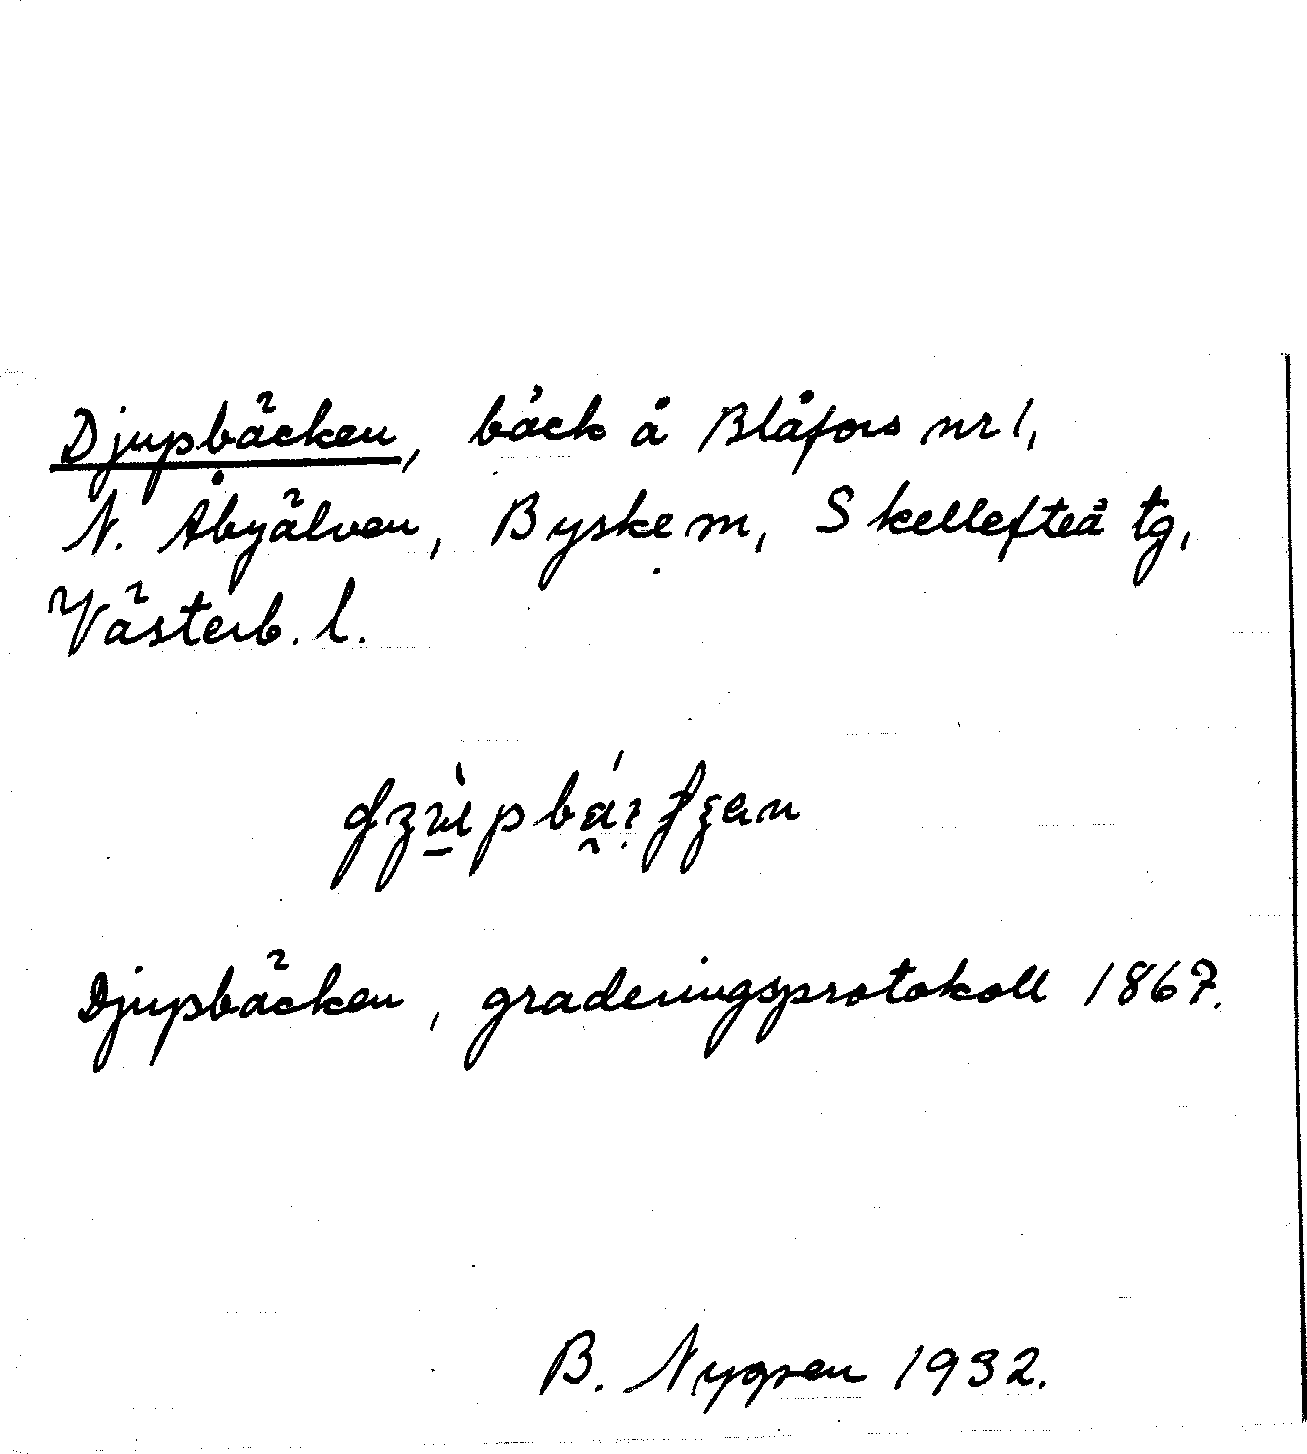 Djupbäcken, bäck å Blåfors nr 1,
N. Åbyälven, Byske sn, Skellefteå tg,
Västerb. l.
Djupbäcken, graderingsprotokoll 1867.
B. Nygren 1932.